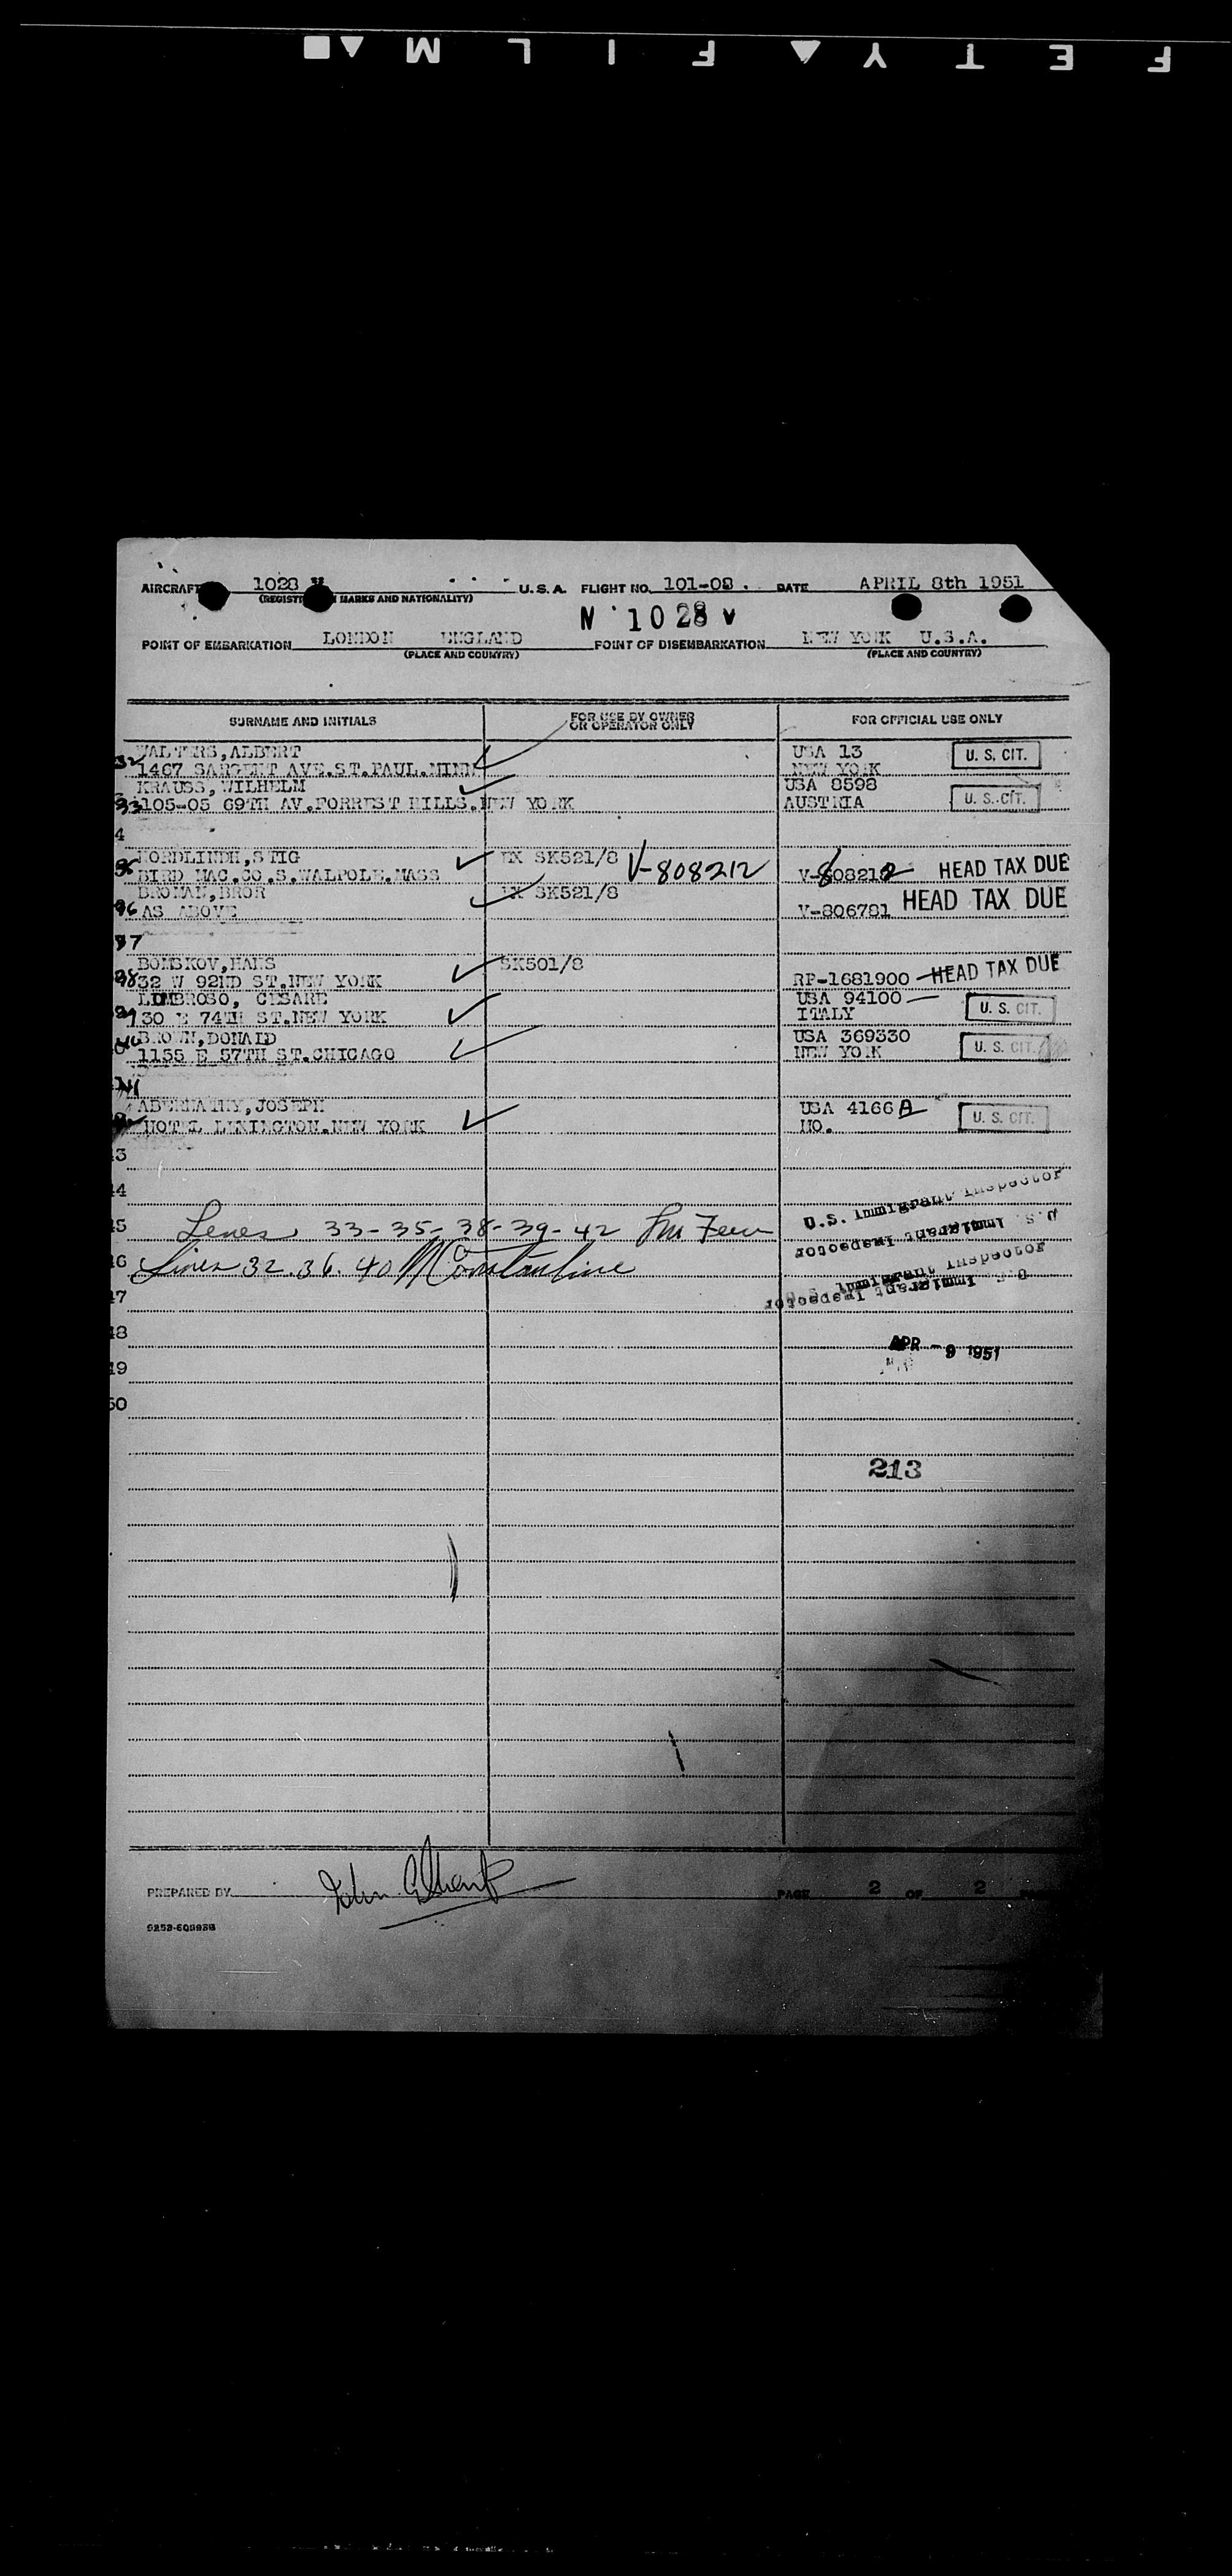 SAFETY FILM
AIRCRAFT 1028 V U.S.A. FLIGHT NO. 101-08. DATE APRIL 8th 1951
(REGISTRATION MARKS AND NATIONALITY)
N 1028 V
POINT OF EMBARKATION LONDON ENGLAND POINT OF DISEMBARKATION NEW YORK U.S.A.
(PLACE AND COUNTRY) (PLACE AND COUNTRY)
SURNAME AND INITIALS FOR USE BY OWNER OR OPERATOR ONLY FOR OFFICIAL USE ONLY
WALTERS, ALBERT USA 13 U. S. CIT.
32 1467 SARGENT AVE.ST.PAUL.MINN NEW YORK
KRAUSS, WILHELM USA 8598
33 105-05 69TH AV.FORREST HILLS.NEW YORK AUSTRIA U. S. CIT.
4
NORDLINDH, STIG SK521/8 V-808212
35 BIRD MAC.CO.S.WALPOLE.MASS V-808212 HEAD TAX DUE
BROMAN, BROR SK521/8
36 AS ABOVE V-806781 HEAD TAX DUE
37
BOMSKOV, HANS SK501/8
38 32 W 92ND ST.NEW YORK RP-1681900 HEAD TAX DUE
LUMBROSO, CESARE USA 94100
39 130 E 74TH ST.NEW YORK ITALY U. S. CIT.
40 BROWN, DONALD USA 369330
1155 E 57TH ST.CHICAGO NEW YORK U. S. CIT.
41
ABERNATHY, JOSEPH USA 4166A
HOTEL LEXINGTON.NEW YORK MO. U. S. CIT.
43
44
U.S. Immigrant Inspector
45 Lines 33-35-38-39-42
U.S. Immigrant Inspector
46 Lines 32.36.40 M Constantine
Immigrant Inspector
47
U.S. Immigrant Inspector
48
APR -9 1951
49
50
213
PREPARED BY John PAGE 2 OF 2